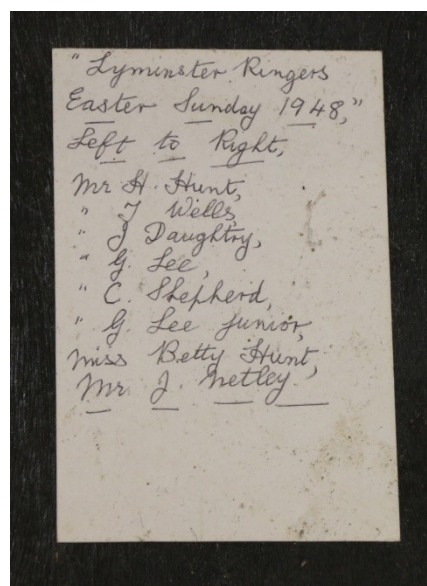 "Lyminster Ringers
Easter Sunday 1948,"
Left to Right,
Mr H. Hunt,
" J Wells,
" J Daughtry,
" G. Lee,
" C. Shepherd,
" G. Lee junior,
Miss Betty Hunt,
Mr J. Netley.